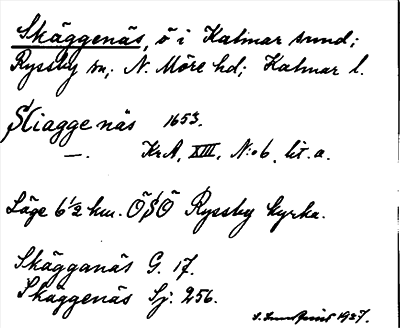 Skäggenäs, ö i Kalmar sund;
Ryssby sn; N. Möre hd; Kalmar l.
Skiaggenäs 1653.
—. KrA, XIII, N:o 6, lit. a.
Läge 6 1/2 km. ÖSÖ Ryssby kyrka.
Skägganäs G. 17.
Skäggenäs Sj. 256.
1927.